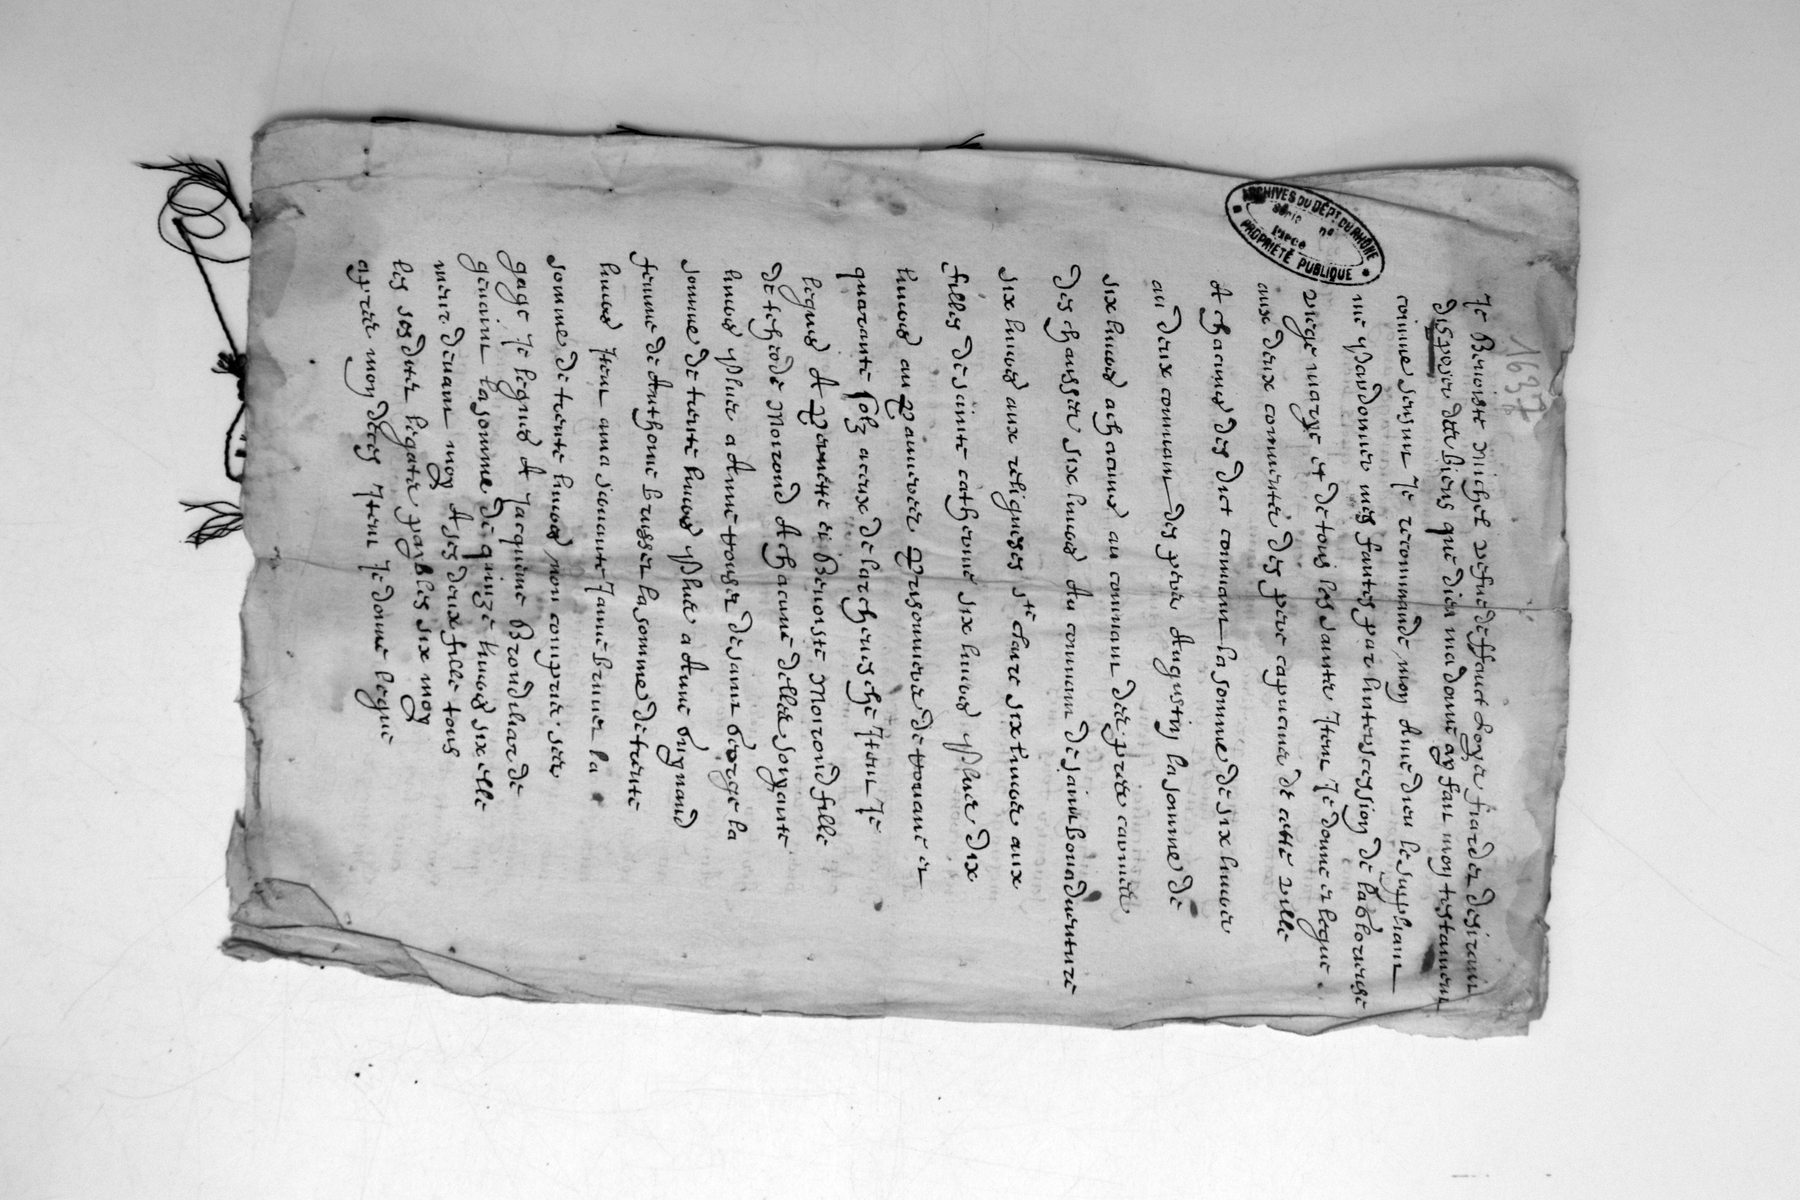 1637
ARCHIVES DU DÉPT DU RHÔNE
Série n°
Pièce
PROPRIÉTÉ PUBLIQUE
Je Benoiste Michel vefue deffauct Loys fiardet desirant
disposer des biens que dieu ma donné ay fait mon testament
comme sensuit Je recommande mon Ame a dieu le supliant
me pardonner mes fautes par lintercession de la glorieuse
vierge marye et de tous les saints Item Je donne et legue
aux deux couvents des pere capucins de cette ville
A chacuns des dict couvant la somme de six livres
au deux couvant des pere Augustin la somme de
six livres a chacuns au couvant des pere carmes
deschausses six livres Au couvant de saint bonaduenture
six livres aux religieuses ste claire six livres aux
filles de sainte catherine six livres plus dix
livres au pauvres prisonniers de rouane et
quarante solz a ceux de larchevesche Item Je
legue A pernette et Benoiste Moirond fille
de Moirond A chacune delles soixante
livres plus a Anne de saint george la
somme de trente livres plus a Anne
femme de Anthoine la somme de trente
livres Item a ma servante Janne brunet la
somme de trente livres non compris ses
gage Je legue A Jacquème Brondilard de
la somme de quinze livres six elle
devant moy A ses deux fille tous
les sesdits legats payables six moy
apres mon deces Item Je donne legue